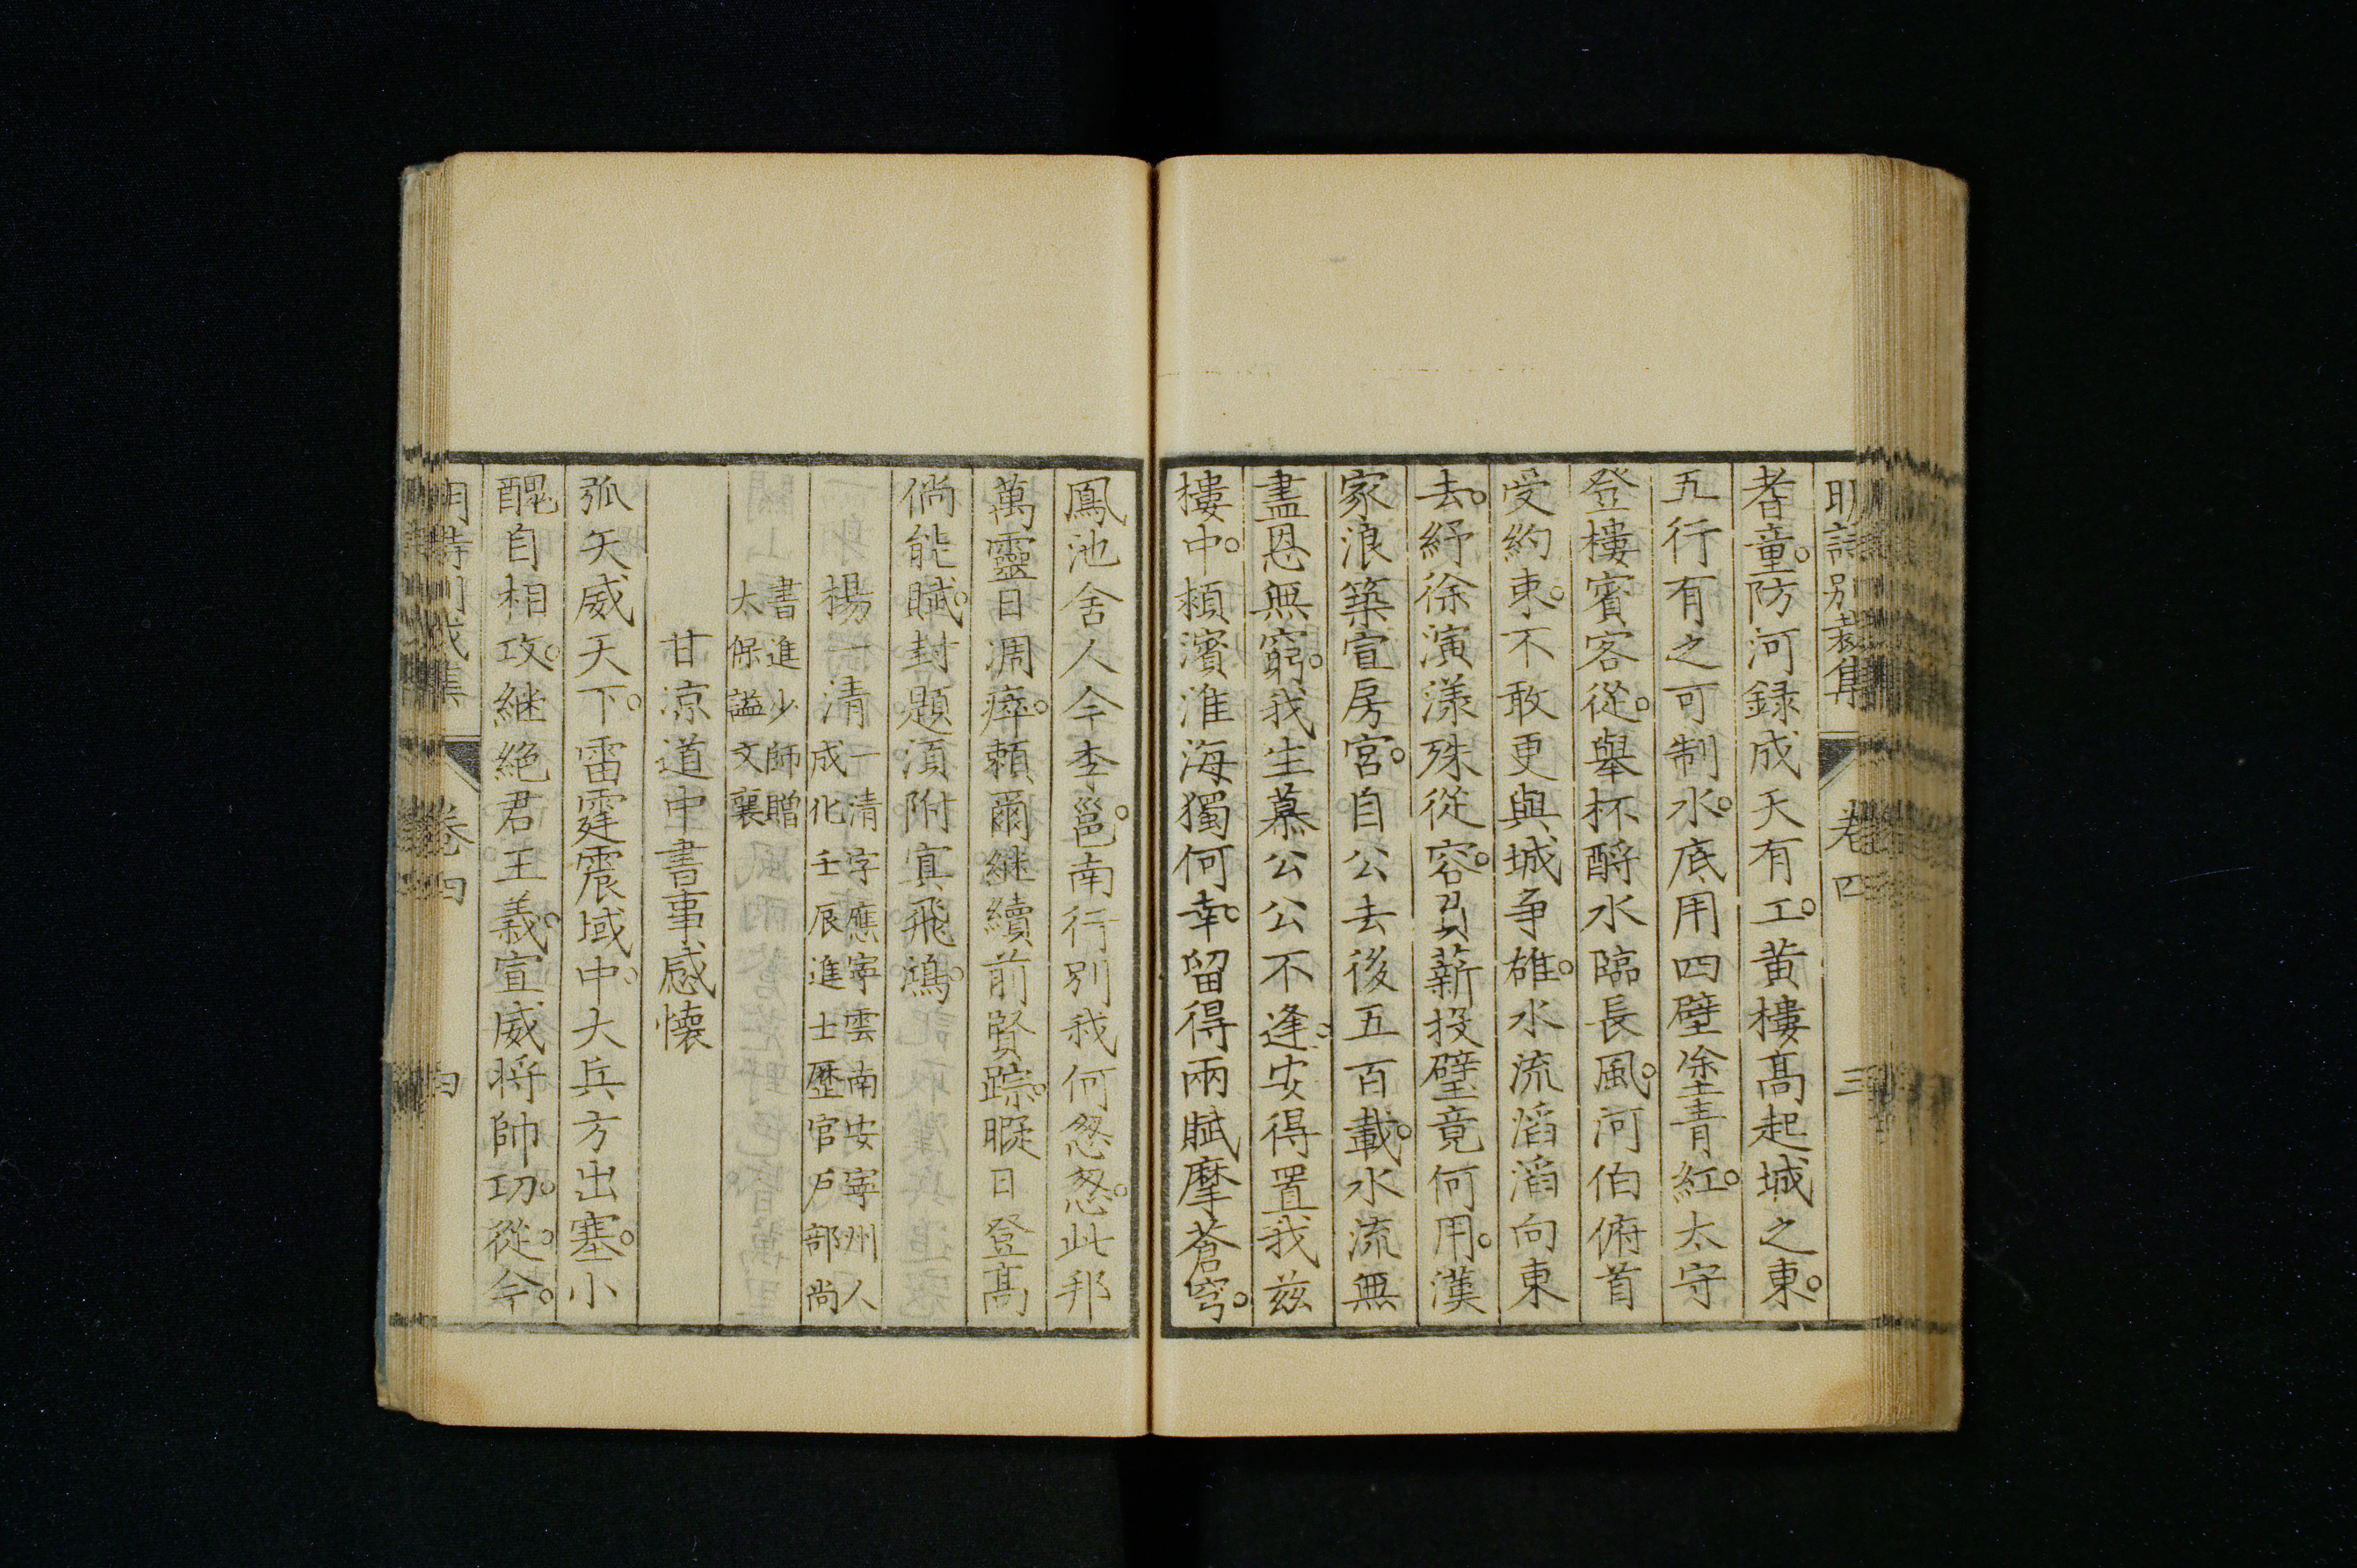 明詩別裁集 卷四 三
耆童。防河録成天有工。黄樓髙起城之東。
五行有之可制水。底用四壁塗青紅。太守
登樓賓客從。舉杯酹水臨長風。河伯俯首
受約束。不敢更與城争雄。水流滔滔向東
去。紓徐演漾殊從容。負薪投璧竟何用。漢
家浪築宣房宮。自公去後五百載。水流無
盡恩無窮。我生慕公公不逢。安得置我兹
樓中。頼濱淮海獨何幸。留得兩賦摩蒼穹。
鳳池舍人今李邕。南行別我何怱怱。此邦
萬靈日凋瘁。頼爾継續前賢踪。暇日登髙
倘能賦。封題湏附寘飛鴻。
楊一清 一清字應寧雲南安寧州人
成化壬辰進士歴官户部尚
書進少師贈
太保謚文襄
甘凉道中書事感懐
弧矢威天下。雷霆震域中。大兵方出塞。小
醜自相攻。継絶君王義。宣威将帥功。從今。
明詩別裁集 卷四